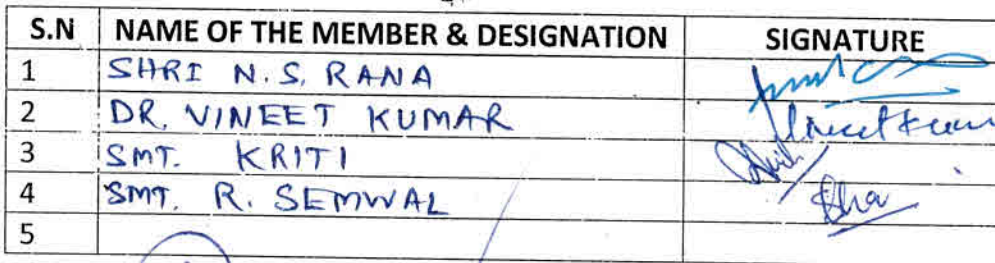 S.N NAME OF THE MEMBER & DESIGNATION SIGNATURE
1 SHRI N. S. RANA
2 DR. VINEET KUMAR Vineet Kumar
3 SMT. KRITI
4 SMT. R. SEMWAL
5